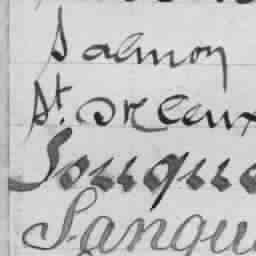 Salmon
St. Orleaux
Souque
Sangu